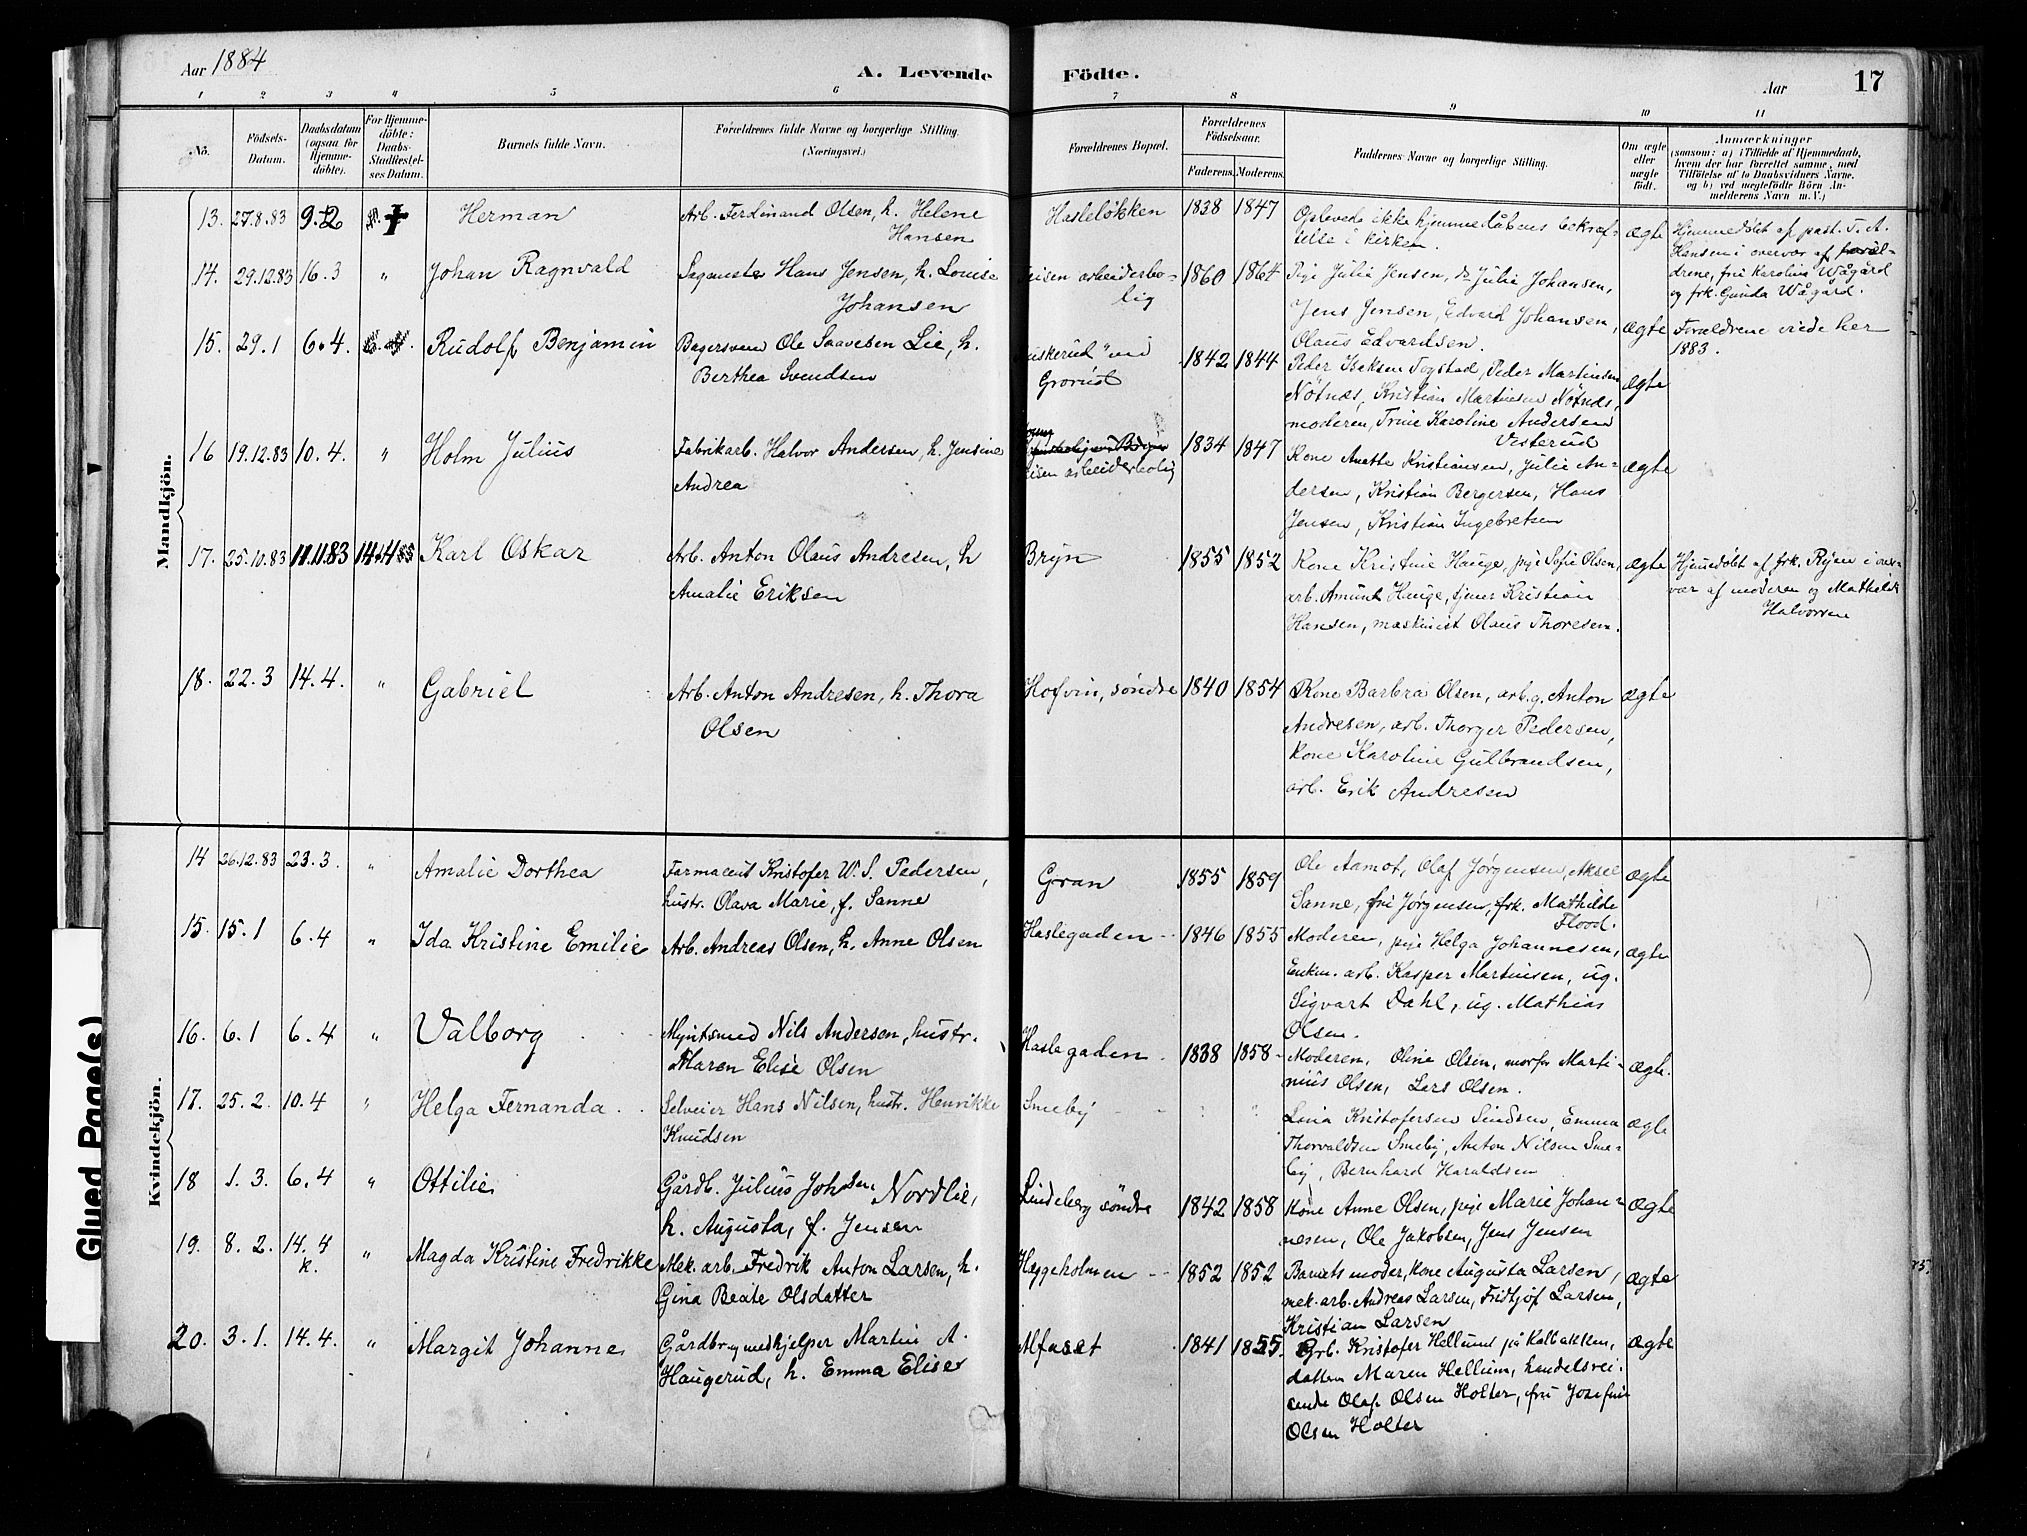 Aar 1884
A. Levende Födte.
Aar 17
1 2 3 4 5 6 7 8 9 10 11
No.
Födsels-
Datum.
Daabsdatum
(ogsaa for
Hjemme-
döbte).
For Hjemme-
döbte:
Daabs-
Stadfæstel-
ses Datum.
Barnets fulde Navn.
Forældrenes fulde Navne og borgerlige Stilling.
(Næringsvei.)
Forældrenes Bopæl.
Forældrenes
Födselsaar.
Faderens. Moderens.
Faddernes Navne og borgerlige Stilling.
Om ægte
eller
uægte
födt.
Anmærkninger
(saasom: a) i Tilfælde af Hjemmedaab,
hvem der har forrettet samme, med
Tilföielse af to Daabsvidners Navne.
og b) ved uægtefödte Börn An-
melderens Navn m. V.)
Mandkjön.
13. 27.8.83 9.2 Herman
Arb. Ferdinand Olsen, h. Helene
Hansen
Hasleløkken 1838 1847
Oplevede ikke hjemmedåbens bekræf-
telse i kirken.
ægte
Hjemmedøbt af past. T. A.
Hansen i overvær af foræl-
drene, fru Karoline Wågård
og frk. Gunda Wågård.
14. 29.12.83 16.3 " Johan Ragnvald
Sagmester Hans Jensen, h. Louise
Johansen
arbeiderbo-
lig
1860 1864
Pige Julie Jensen, do Julie Johansen,
Jens Jensen, Edvard Johansen,
Olaus Edvardsen.
ægte
Forældrene viede her
1883.
15. 29.1 6.4. Rudolf Benjamin
Bagersvend Ole Saavesen Lie, h.
Berthea Svendsen
uskerud "ved
Grorud
1842 1844
Peder Isaksen Fogstad, Peder Martinsen
Nøtnæs, Kristian Martinsen Nøtnæs,
moderen, Trine Karoline Andersen
Vesterud
ægte
16 19.12.83 10.4. " Holm Julius
Fabrikarb. Halvor Andersen, h. Jensine
Andrea
arbeiderbolig
1834 1847
Kone Anette Kristiansen, Julie An-
dersen, Kristian Bergersen, Hans
Jensen, Kristian Ingebretsen
ægte
17. 25.10.83 11.11.83 14.4 Karl Oskar
Arb. Anton Olaus Andresen, h
Amalie Eriksen
Bryn 1855 1852
Kone Kristine Hauge, pige Sofie Olsen,
arb. Amund Hauge, tjener Kristian
Hansen, maskinist Olaus Thoresen.
ægte
Hjemedøbt af frk. Rysen i over-
vær af moderen og Mathilde
Halvorsen
18. 22.3 14.4. " Gabriel
Arb. Anton Andresen, h. Thora
Olsen
Hofvin, søndre 1840 1854
Kone Barbra Olsen, arb.g. Anton
Andresen, arb. Thorger Pedersen,
kone Karoline Gulbrandsen,
arb. Erik Andresen
ægte
Kvindekjön.
14 26.12.83 23.3. " Amalie Dorthea
Farmaceut Kristofer W. S. Pedersen,
hustr. Olava Marie, f. Sanne
Gran 1855 1859
Ole Aamot, Olaf Jørgensen, Aksel
Sanne, fru Jørgensen, frk. Mathilde
Flood.
ægte
15. 15.1 6.4 " Ida Kristine Emilie
Arb. Andreas Olsen, h. Anne Olsen
Haslegaden 1846 1855
Moderen, pige Helga Johannesen,
Enkm. arb. Kasper Martinsen, ug.
Sigvart Dahl, ug. Mathias
Olsen.
ægte
16. 6.1 6.4 " Valborg
Myntsmed Nils Andersen, hustr.
Maren Elise Olsen
Haslegaden 1838 1858
Moderen, Oline Olsen, morfar Marti-
nius Olsen, Lars Olsen.
ægte.
17. 25.2. 10.4 " Helga Fernanda
Selveier Hans Nilsen, hustr. Henrikke
Knudsen
Smeby " "
Lovia Kristofersen Lindsen, Emma
Thorvaldsen Smeby, Anton Nilsen Sme-
by, Bernhard Haraldsen
ægte
18 1.3. 6.4 " Ottilie
Gårdb. Julius Johnsen Nordlie,
h. Augusta, f. Jensen
Lindeberg søndre 1842 1858
Kone Anne Olsen, pige Marie Johan-
nesen, Ole Jakobsen, Jens Jensen
ægte
19. 8.2. 14.4
k.
" Magda Kristine Fredrikke
Mek. arb. Fredrik Anton Larsen, h.
Gina Beate Olsdatter
Heggeholmen 1852 1852
Barnets moder, kone Augusta Larsen,
mek. arb. Andreas Larsen, Fridtjof Larsen,
Kristian Larsen
ægte
20. 3.1. 14.4. " Margit Johanne
Gårdbr. og medhjelper Martin A.
Haugerud, h. Emma Elise
Alfaset 1841 1855.
Grb. Kristofer Hellum på Kalbakken,
datteren Maren Hellum, handelsrei-
sende Olaf Olsen Holter, fru Josefine
Olsen Holter
ægte
Glued Page(s)